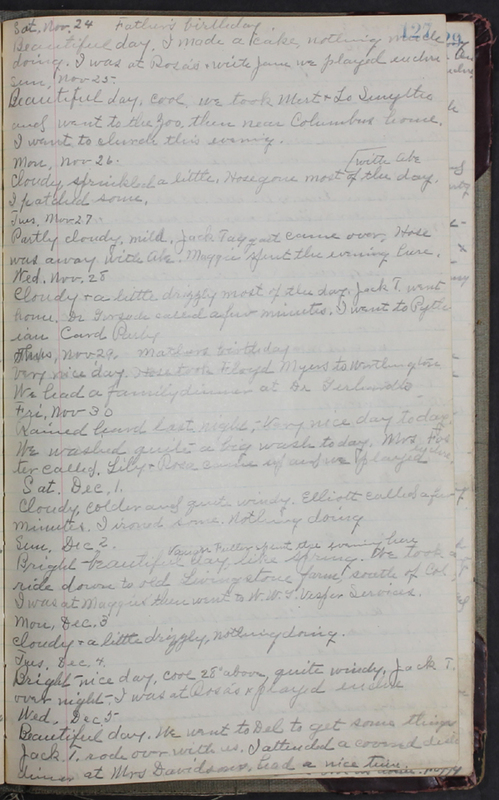 127
Sat, Nov. 24 Father's birthday
Beautiful day. I made a cake, nothing much
doing. I was at Rosa's, write Jane we played euchre
Sun, Nov-25-
Beautiful day, cool, we took Mert + Lo
and went to the Zoo, then near Columbus home,
I went to church this evening.
Mon, Nov-26-
with Abe
Cloudy, sprinkled a little, Hose gone most of the day.
I patched some.
Tues, Nov-27-
Partly cloudy, mild, Jack Taggart came over, Hose
was away with Abe. Maggie spent the evening here.
Wed, Nov, 28
Cloudy + a little drizzly most of the day. Jack T. went
home, Dr. called a few minutes. I went to Pyth
ian Card Party
Thurs, Nov-29. Mothers birthday
Very nice day. Hose took Floyd Myers to Worthington
We had a family dinner at Dr
Fri, Nov 30
Rained hard last night, Very nice day today
We washed quite a big wash to day, Mrs, Fos
ter called, Lily + Rosa came up and we played euchre
Sat. Dec, 1.
Cloudy, colder and quite windy. Elliott called a few
minutes. I ironed some. Nothing doing
Sun, Dec 2.
Fuller spent the evening here
Bright beautiful day, like spring. We took a
ride down to old Livingstone farm, south of Col,
I was at Maggies then went to W.W.G. Vesper Services.
Mon, Dec, 3
Cloudy + a little drizzly, nothing doing.
Tues, Dec, 4.
Bright - nice day, cool 28° above, quite windy, Jack T.
over night, I was at Rosa's + played euchre
Wed. Dec, 5-
Beautiful day. We went to Del to get some things
Jack. T. rode over with us. I attended a covered dish
dinner at Mrs Davidsons, had a nice time.